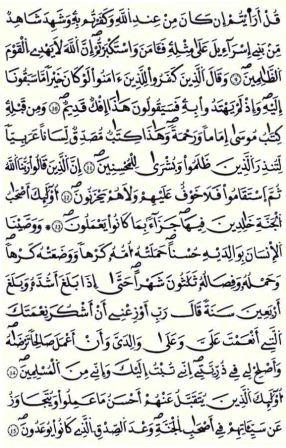 قُلَ اَرَٰيْتُمُۥٓ إِن كَانَ مِنْ عِندِ اِ۬للَّهِ وَكَفَرْتُم بِهِۦ وَشَهِدَ شَاهِدٞ
مِّنۢ بَنِےٓ إِسْرَآءِيلَ عَلَيٰ مِثْلِهِۦ فَـَٔامَنَ وَاسْتَكْبَرْتُمُۥٓ إِنَّ اَ۬للَّهَ لَا يَهْدِے اِ۬لْقَوْمَ
اَ۬لظَّٰلِمِينَ ٩ وَقَالَ اَ۬لذِينَ كَفَرُواْ لِلذِينَ ءَامَنُواْ لَوْ كَانَ خَيْراٗ مَّا سَبَقُونَآ
إِلَيْهِ وَإِذْ لَمْ يَهْتَدُواْ بِهِۦ فَسَيَقُولُونَ هَٰذَآ إِفْكٞ قَدِيمٞ ١٠ وَمِن قَبْلِهِۦ
كِتَٰبُ مُوس۪يٰٓ إِمَاماٗ وَرَحْمَةٗ وَهَٰذَا كِتَٰبٞ مُّصَدِّقٞ لِّسَاناً عَرَبِيّاٗ
لِّتُنذِرَ اَ۬لذِينَ ظَلَمُواْ وَبُشْر۪يٰ لِلْمُحْسِنِينَ ١١ إِنَّ اَ۬لذِينَ قَالُواْ رَبُّنَا اَ۬للَّهُ
ثُمَّ اَ۪سْتَقَٰمُواْ فَلَا خَوْفٌ عَلَيْهِمْ وَلَا هُمْ يَحْزَنُونَ ١٢ أُوْلَٰٓئِكَ أَصْحَٰبُ
اُ۬لْجَنَّةِ خَٰلِدِينَ فِيهَا جَزَآءَۢ بِمَا كَانُواْ يَعْمَلُونَ ١٣ ۞ وَوَصَّيْنَا
اَ۬لِانسَٰنَ بِوَٰلِدَيْهِ حُسْناً حَمَلَتْهُ أُمُّهُۥ كَرْهاٗ وَوَضَعَتْهُ كَرْهاٗ
وَحَمْلُهُۥ وَفِصَٰلُهُۥ ثَلَٰثُونَ شَهْراً حَتَّيٰٓ إِذَا بَلَغَ أَشُدَّهُۥ وَبَلَغَ
أَرْبَعِينَ سَنَةٗ قَالَ رَبِّ أَوْزِعْنِيَ أَنَ اَشْكُرَ نِعْمَتَكَ
اَ۬لتِےٓ أَنْعَمْتَ عَلَيَّ وَعَلَيٰ وَٰلِدَيَّ وَأَنَ اَعْمَلَ صَٰلِحاٗ تَرْض۪يٰهُ
وَأَصْلِحْ لِے فِے ذُرِّيَّتِيَ إِنِّے تُبْتُ إِلَيْكَ وَإِنِّے مِنَ اَ۬لْمُسْلِمِينَ ١٤
أُوْلَٰٓئِكَ اَ۬لذِينَ يُتَقَبَّلُ عَنْهُمُۥٓ أَحْسَنُ مَا عَمِلُواْ وَيُتَجَاوَزُ
عَن سَيِّـَٔاتِهِمْ فِےٓ أَصْحَٰبِ اِ۬لْجَنَّةِ وَعْدَ اَ۬لصِّدْقِ اِ۬لذِے كَانُواْ يُوعَدُونَ ١٥